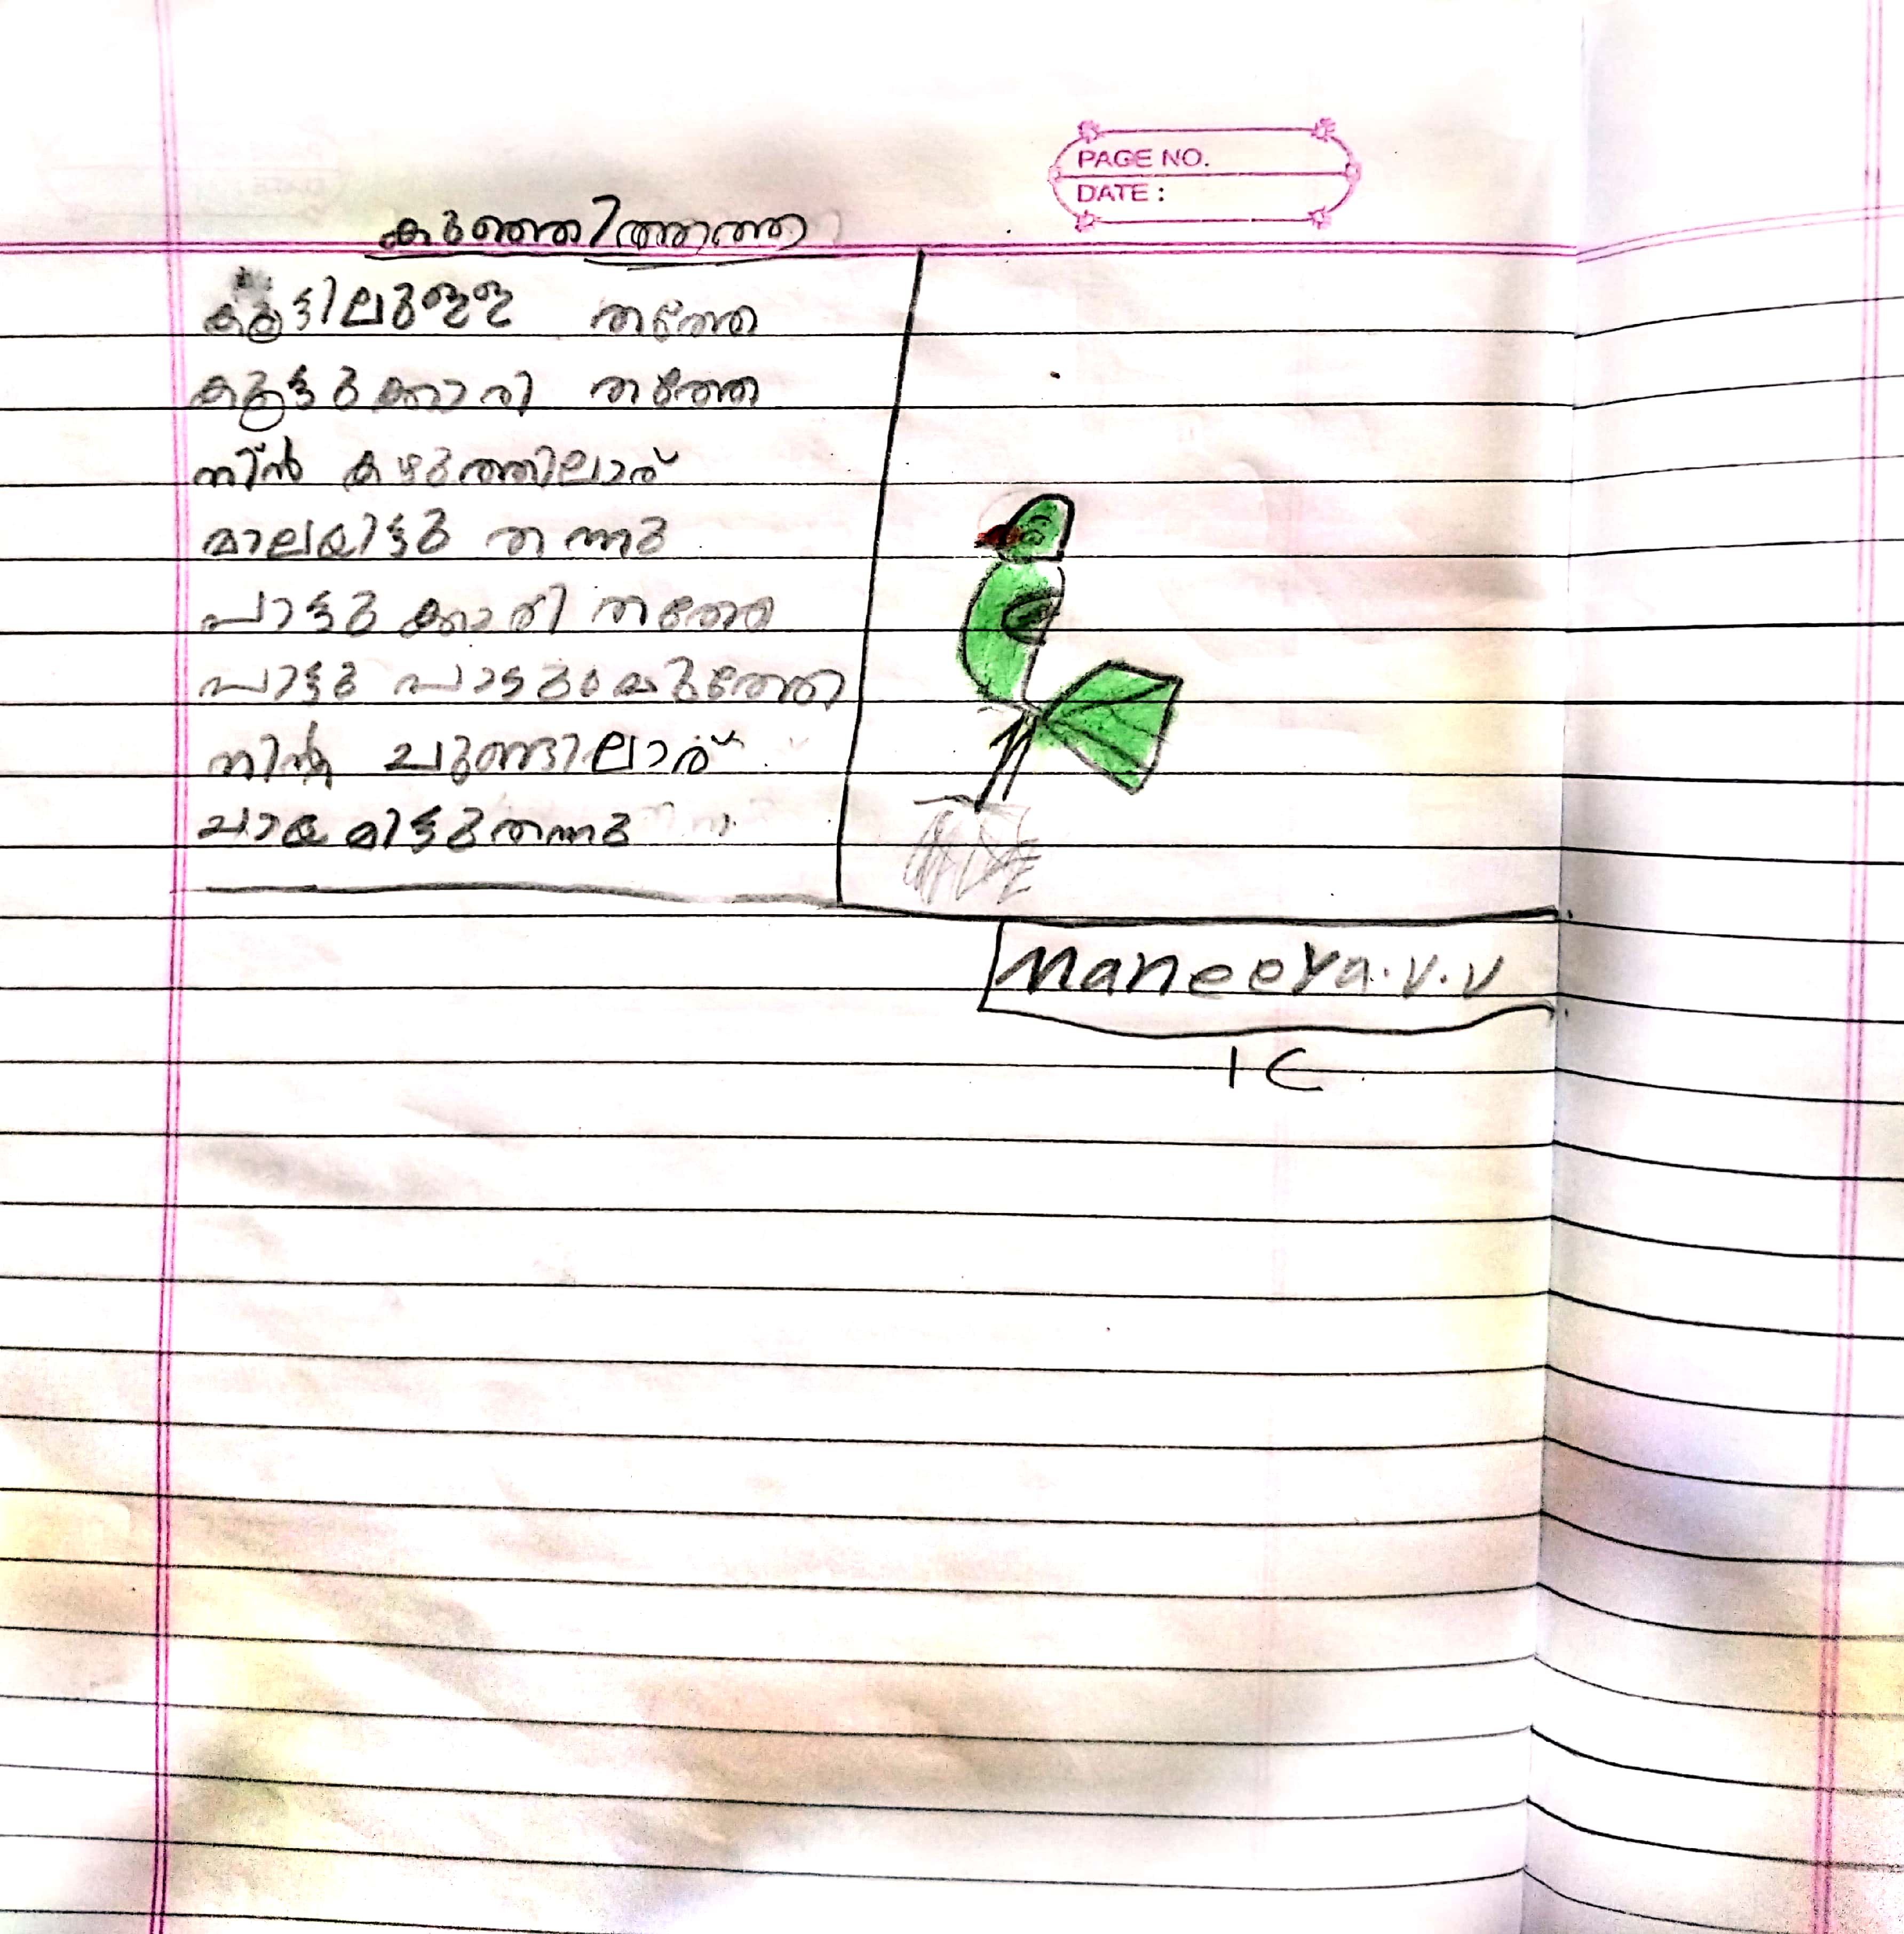 PAGE NO.
DATE :
കുഞ്ഞിത്തത്ത
കൂട്ടിലുള്ള തത്തേ
കൂട്ടുക്കാരി തത്തേ
നിൻ കഴുത്തിലാര്
മാലയിട്ടു തന്നു
പാട്ടുക്കാരി തത്തേ
പാട്ടു പാടും
നിന്റെ ചുണ്ടിലാര്
ചായമിട്ടുതന്നു
Maneeya.v.v
1 C